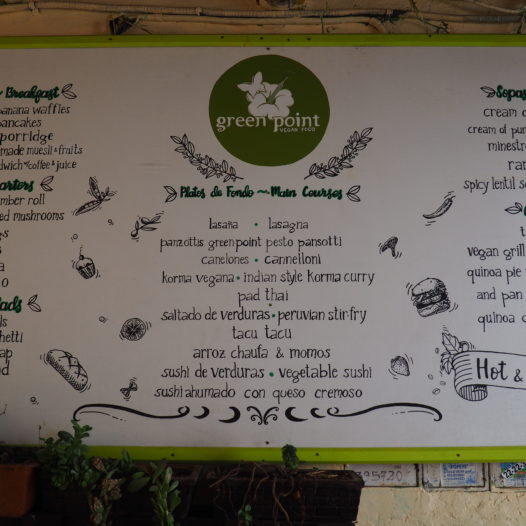 Breakfast
banana waffles
pancakes
porridge
made muesli & fruits
coffee & juice
roll
mushrooms
green point
VEGAN FOOD
Platos de Fondo ~ Main Courses
lasaña • lasagna
panzottis greenpoint pesto pansotti
canelones • cannelloni
korma vegana • indian style korma curry
pad thai
saltado de verduras • peruvian stir-fry
tacu tacu
arroz chaufa & momos
sushi de verduras • vegetable sushi
sushi ahumado con queso cremoso
Sopas
cream
cream of
spicy lentil
vegan
quinoa pie
and pan
quinoa
Hot &